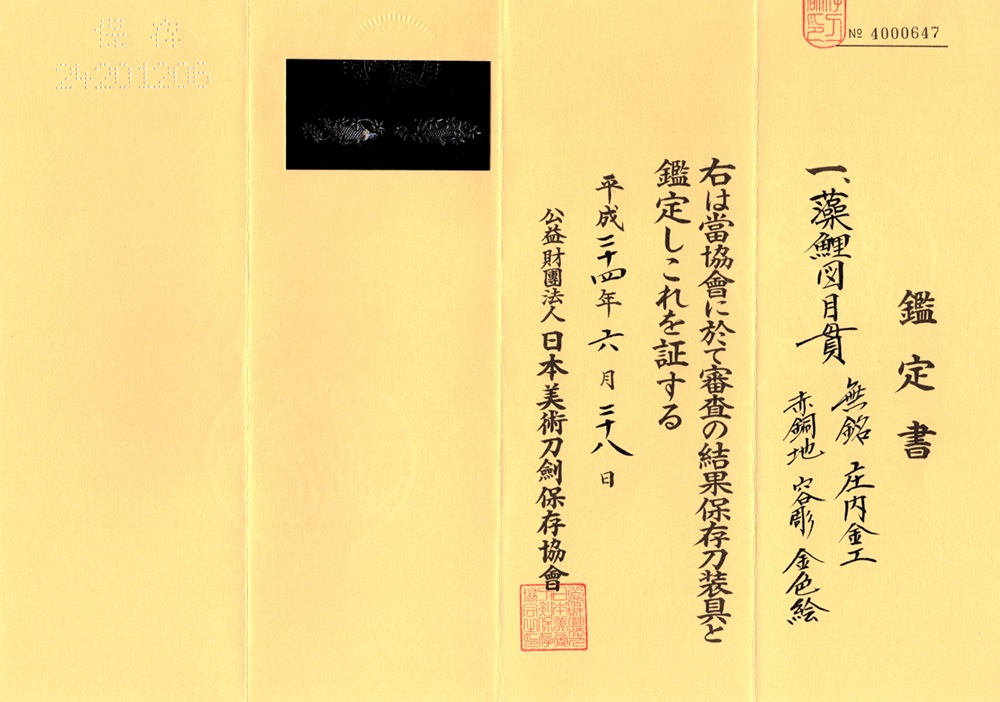 鑑定書
一、藻鯉図目貫
無銘 庄内金工
赤銅地 容彫 金色絵
右は當協會に於て審査の結果保存刀装具と
鑑定しこれを証する
平成二十四年六月二十八日
公益財團法人 日本美術刀劍保存協會
№ 4000647
保存
24201206